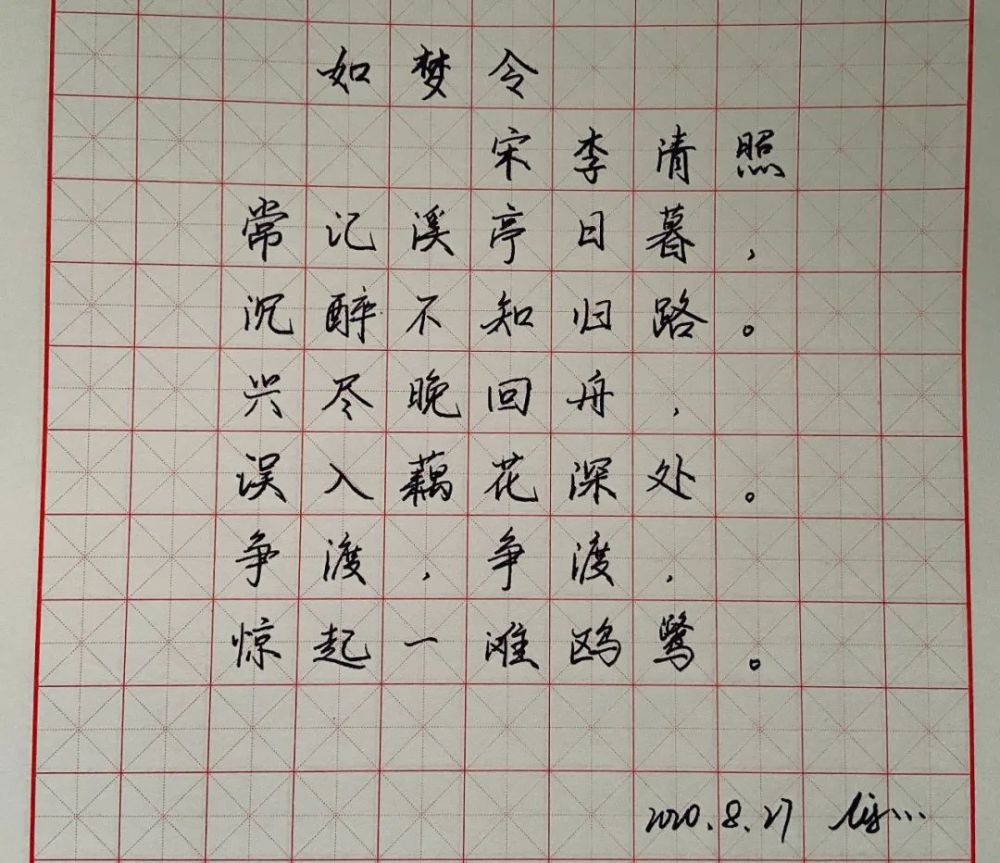 如梦令
宋李清照
常记溪亭日暮，
沉醉不知归路。
兴尽晚回舟，
误入藕花深处。
争渡，争渡，
惊起一滩鸥鹭。
2020.8.27